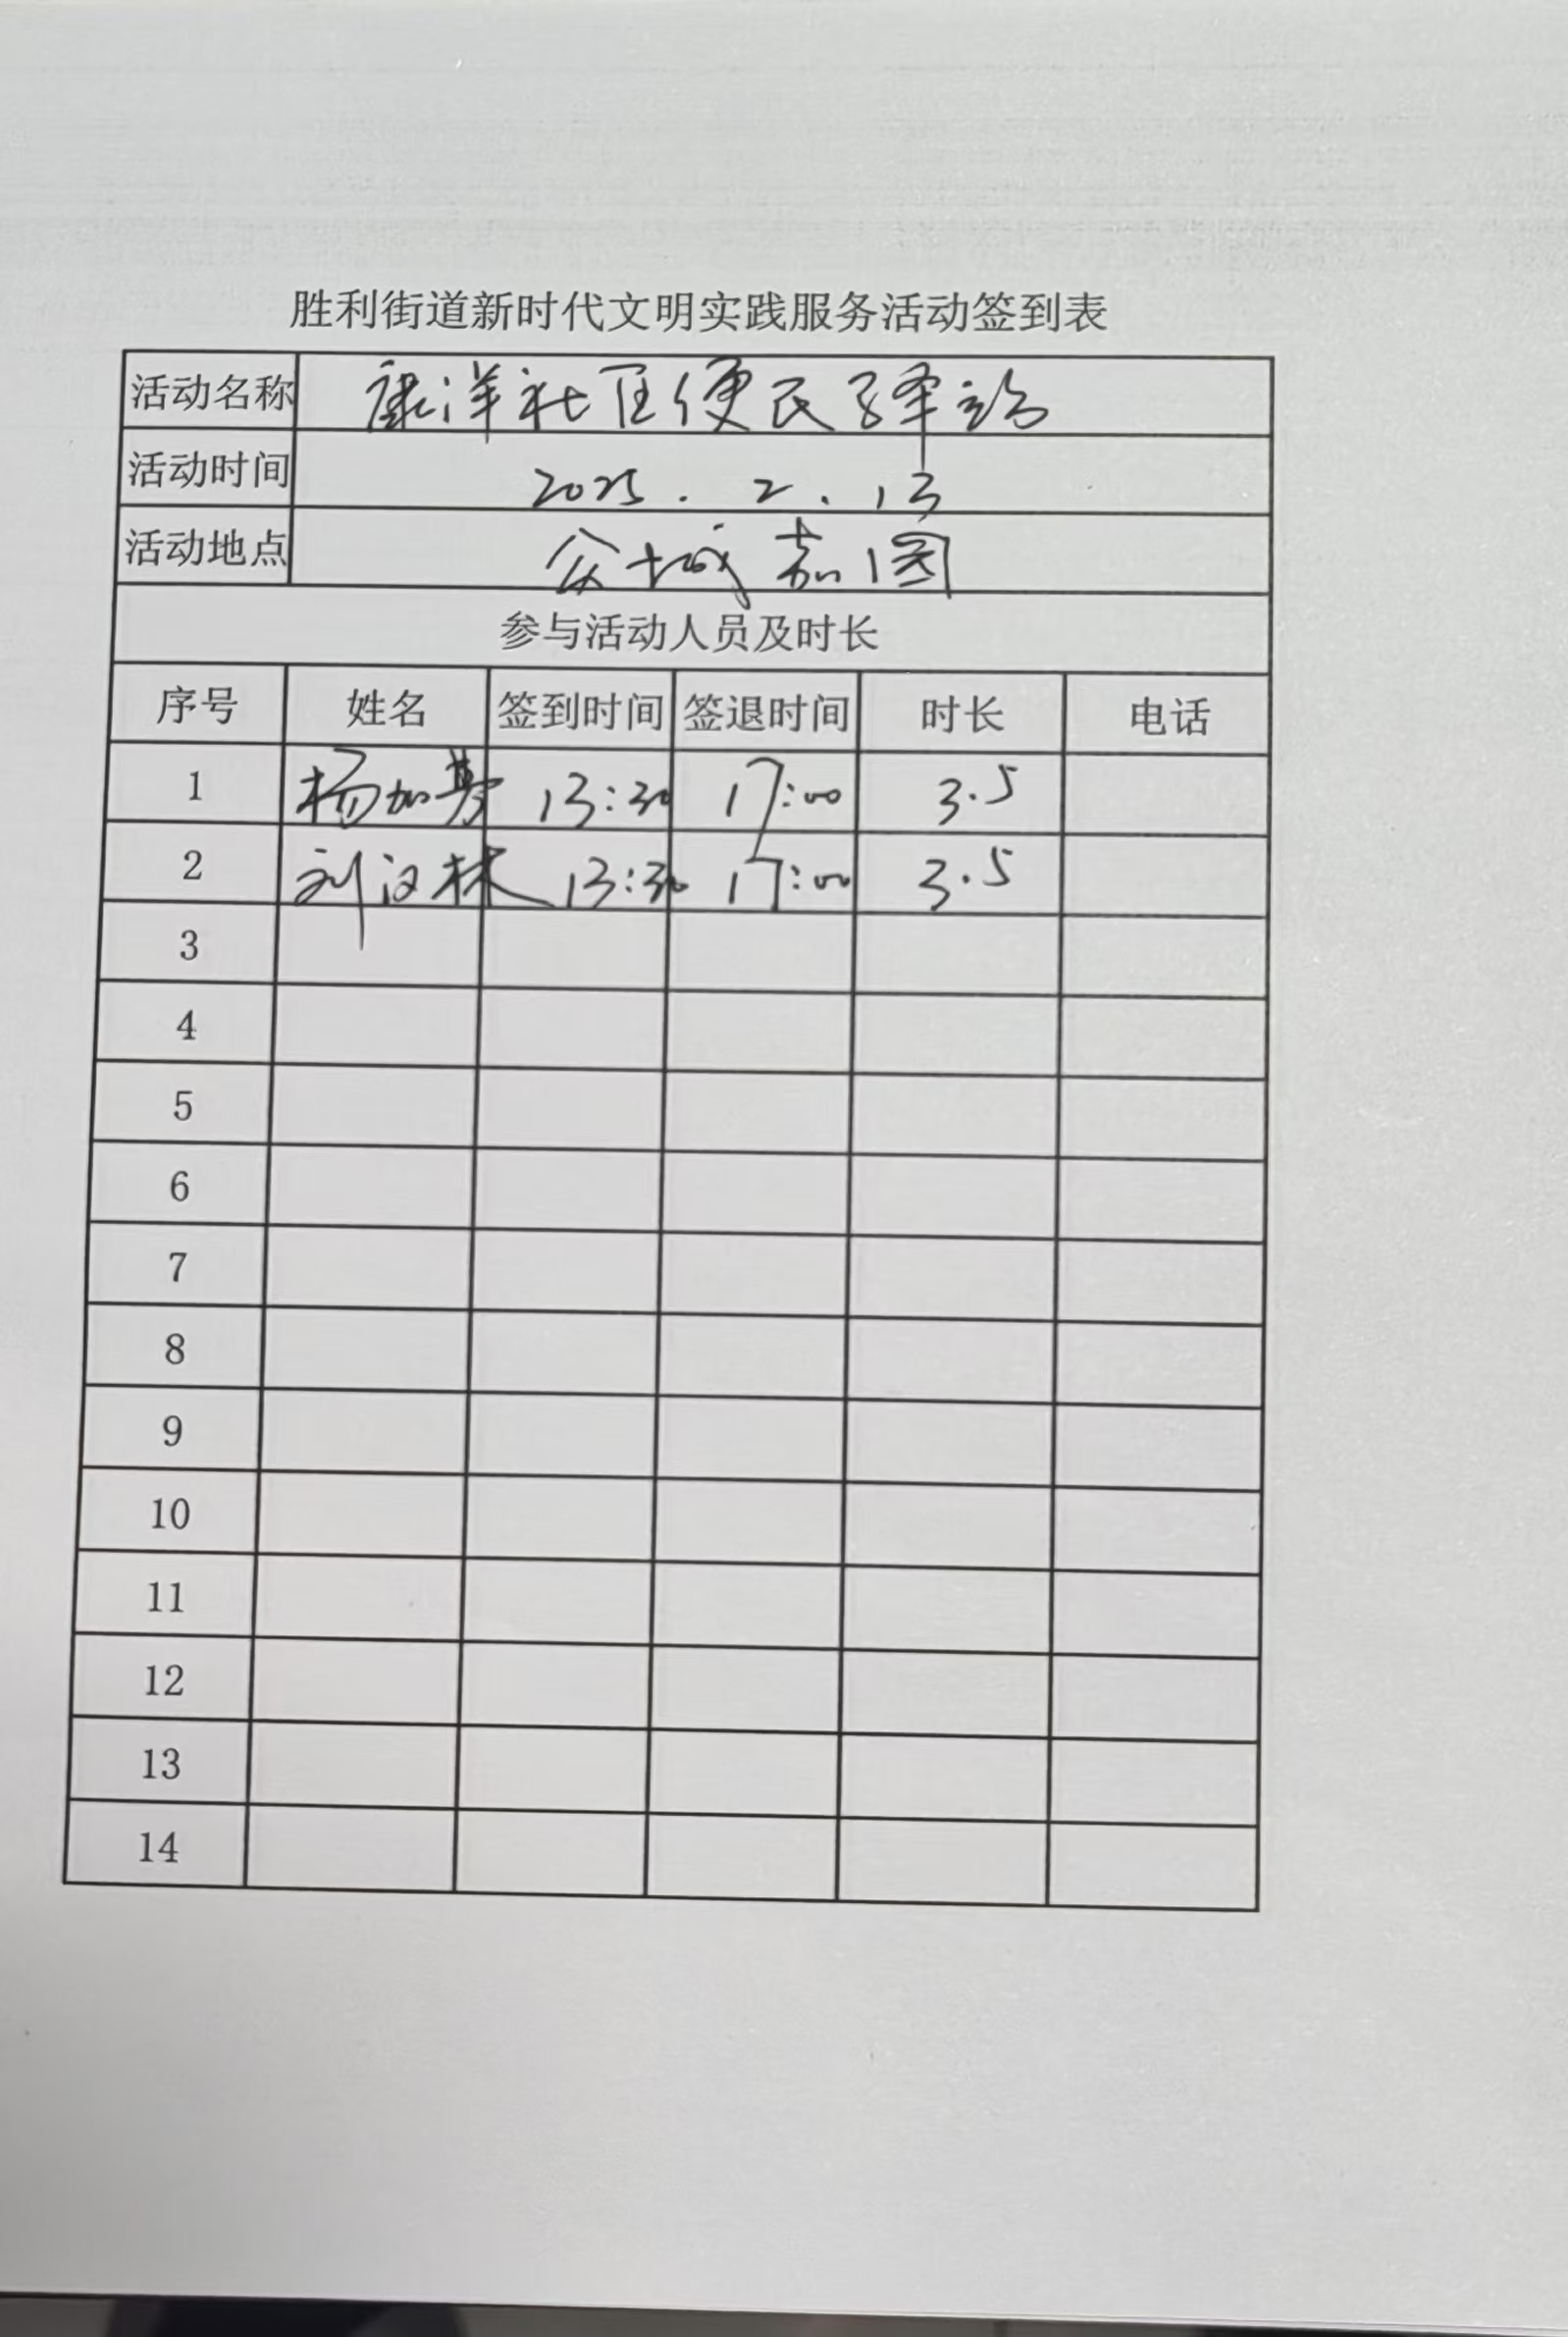 胜利街道新时代文明实践服务活动签到表
活动名称 康洋社区便民驿站
活动时间 2025.2.13
活动地点 众城嘉园
参与活动人员及时长
序号 姓名 签到时间 签退时间 时长 电话
1 杨加 13:30 17:00 3.5
2 刘汉林 13:30 17:00 3.5
3
4
5
6
7
8
9
10
11
12
13
14